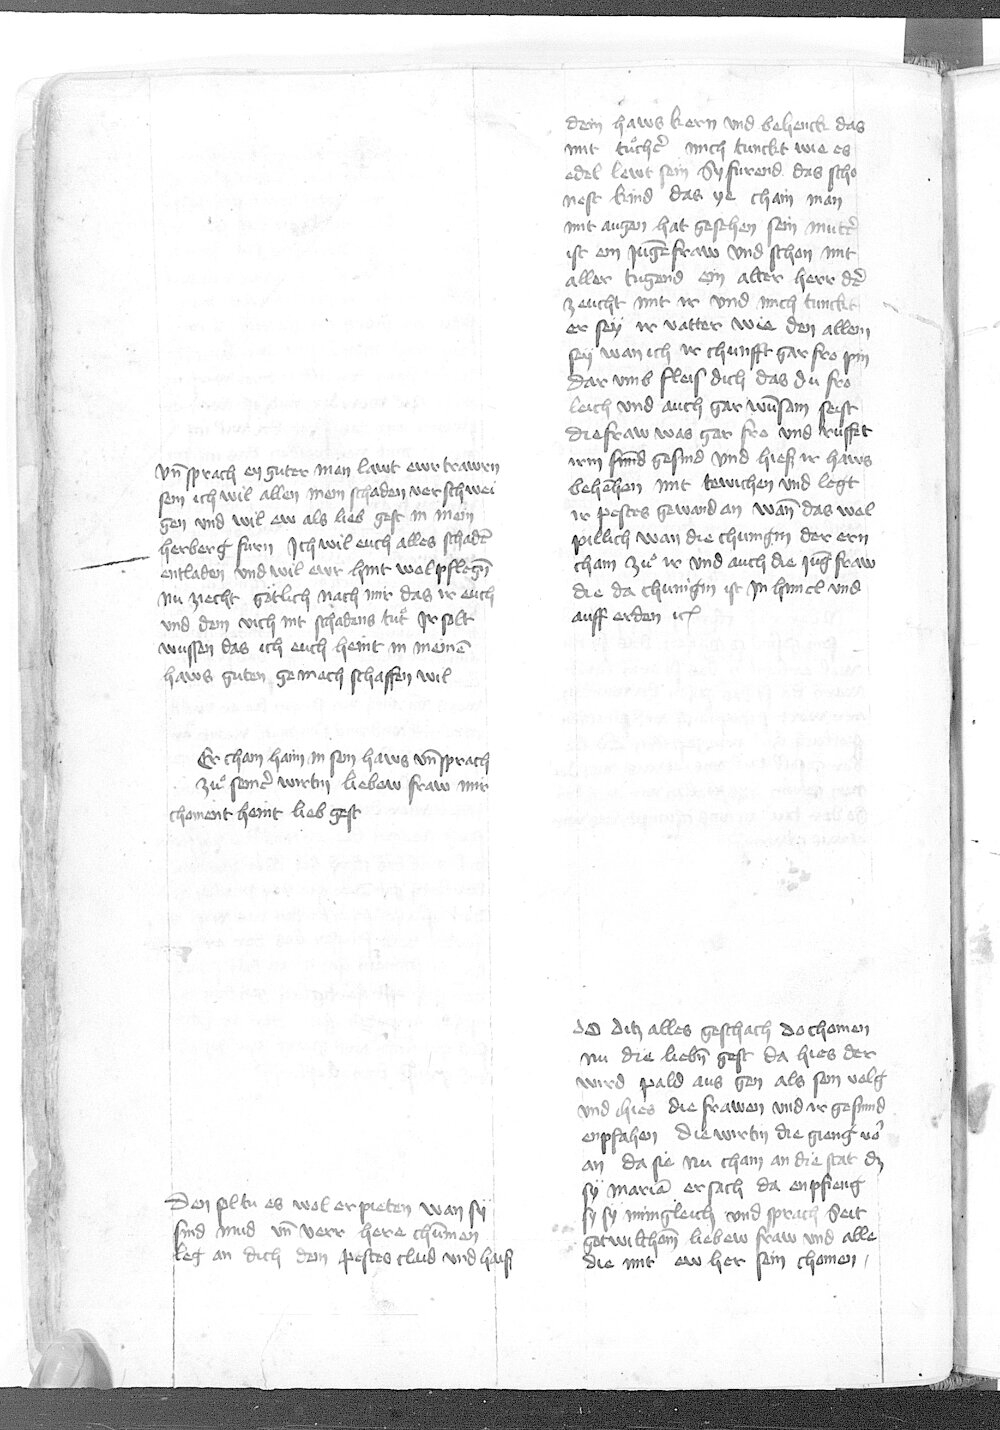 vn̄ sprach en guter man lawt ewr trawrn
sein ich wil allen mein schaden verschwei
gen vnd wil ew als lieb gest in mein
herberg furn Ich wil euch alles schadē
entladen vnd wil ewr hint wol pflegn̄
nu ziecht gutlich nach mir das ir euch
vnd dem vich nit schadens tut Ir solt
wussen das ich euch heint in meinē
haws guten gemach schaffen wil
Er cham haim in sein haws vn̄ sprach
zu seinē wirtin liebew fraw mir
choment heint lieb gest
Den soltu es wol erpieten wan sy
sind mud vn̄ verr here chumen
leg an dich dein pestes claid vnd hais
dein haws kern vnd behenck das
mit tucher mich tunckt wie es
edel lewt sein Sy furend das scho
nest kind das ye chain man
mit augen hat gesehen sein muter
ist ein iugē fraw vnd schon mit
aller tugend ein alter herr der
zeucht mit ir vnd mich tunckt
er sey ir vatter wie den allem
sey wan ich ir chunfft gar fro pin
dar vmb fleis dich das du fro
leich vnd auch gar wunsam seist
die fraw was gar fro vnd rufft
irm gesind vnd hies ir haws
behēhen mit tewichen vnd legt
ir pestes gewand an wann das wol
pillich wan die chunigin der ern
cham zu ir vnd auch die iugfraw
die da chunigin ist In himel vnd
auff erden
do ditz alles geschach do chomen
nu die liebn̄ gest da hies der
wird pald aus gen als sein volg
vnd hies die frawen vnd ir gesind
enpfahen die wirtin die gieng vor
an da sie nu cham an die stat dz
sy mariā ersach da enpfieng
sy sy minigleich vnd sprach Seit
gotwilchom liebew fraw vnd alle
die mit ew her sein chomen